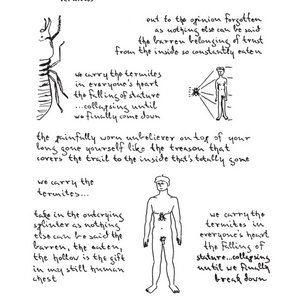 termites
out to the opinion forgotten
as nothing else can be said
the barren belonging of trust
from the inside so constantly eaten
we carry the termites
in everyone's heart
the falling of stature
...collapsing until
we finally come down
the painfully worn unbeliever on top of your
long gone yourself like the treason that
covers the trail to the inside that's totally gone
we carry the
termites...
take in the outcrying
splinter as nothing
else can be said the
barren, the eaten,
the hollow is the gift
in my still human
chest
we carry the
termites in
everyone's heart
the falling of
stature...collapsing
until we finally
break down